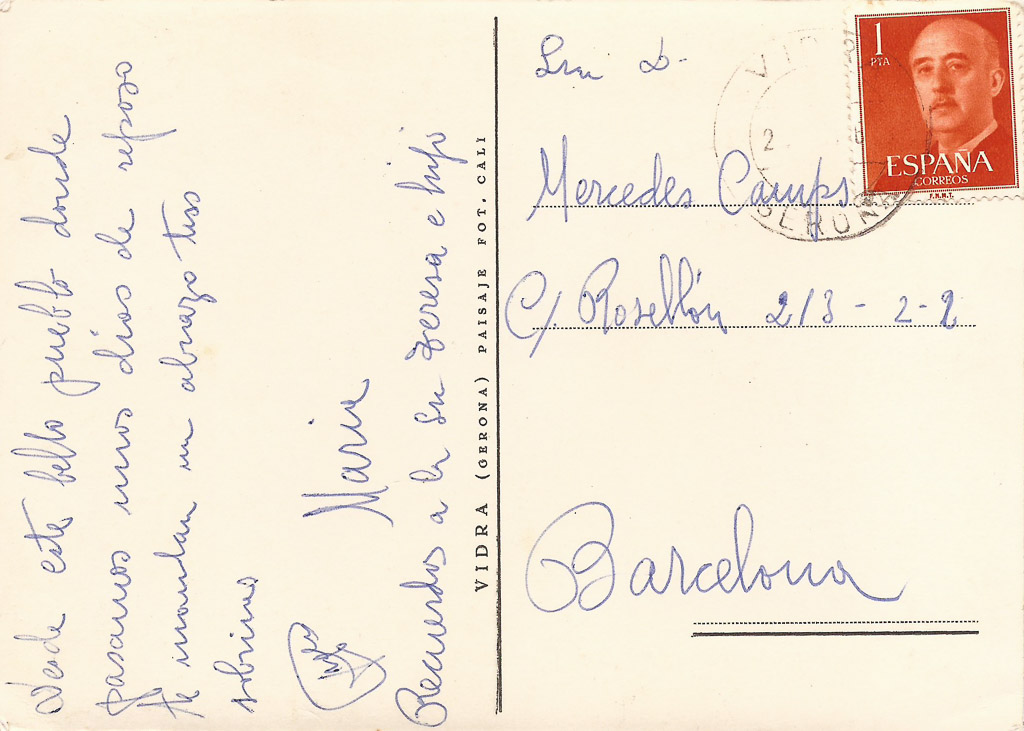 Desde este bello pueblo donde
pasamos unos dias de reposo
te mandan un abrazo tus
sobrinos
Maria
Recuerdos a la Sra Teresa e hijo
VIDRA (GERONA) PAISAJE FOT. CALI
Sra D.
Mercedes Camps
C/. Rosellón 213 - 2-2
Barcelona
1
PTA
ESPAÑA
CORREOS
F.N.M.T.
GERONA